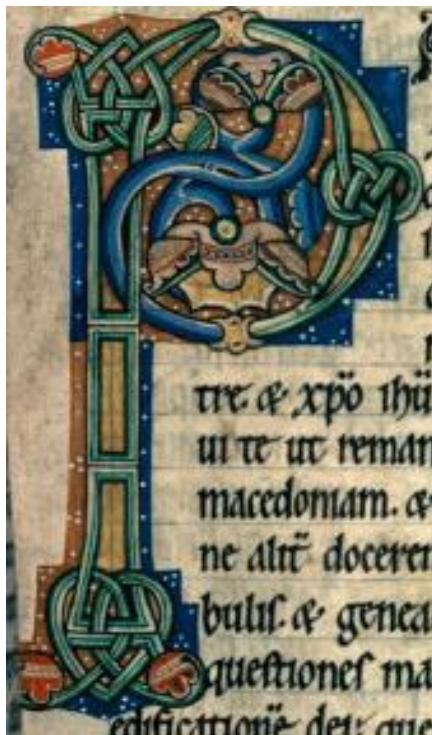 P
tre & xp̄o ihū
ui te ut reman
macedoniam. &
ne alit̄ docerer
bulis. & genea
questiones ma
edificationē dei: que